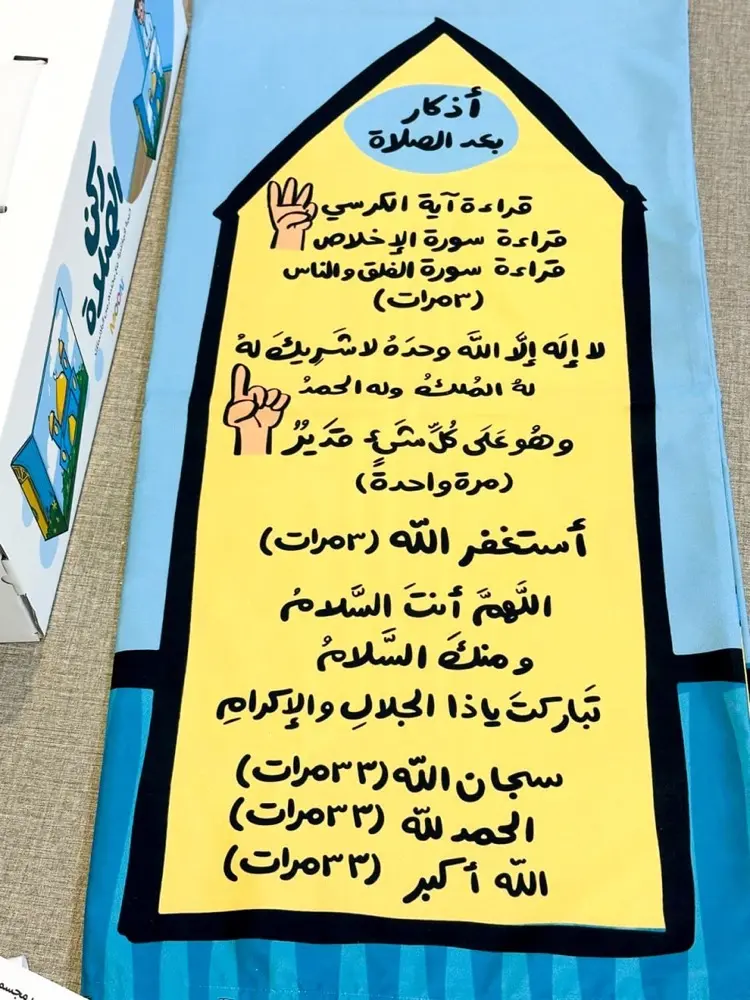 أذكار
بعد الصلاة
قراءة آية الكرسي
قراءة سورة الإخلاص
قراءة سورة الفلق والناس
(٣مرات)
لا إلَه إلَّا اللَّه وحدَهُ لا شَرِيكَ لهُ
لهُ المُلكُ وله الحمدُ
وهُو عَلَى كُلِّ شَيءٍ قَدَيرٌ
(مرة واحدة)
أستغفر اللّه (٣مرات)
اللَّهمَّ أنتَ السَّلامُ
ومنكَ السَّلامُ
تَباركتَ ياذا الجلالِ والإكرامِ
سبحان اللّه (٣٣مرات)
الحمد للّه (٣٣مرات)
اللّه أكبر (٣٣مرات)
ركن
الصلاة